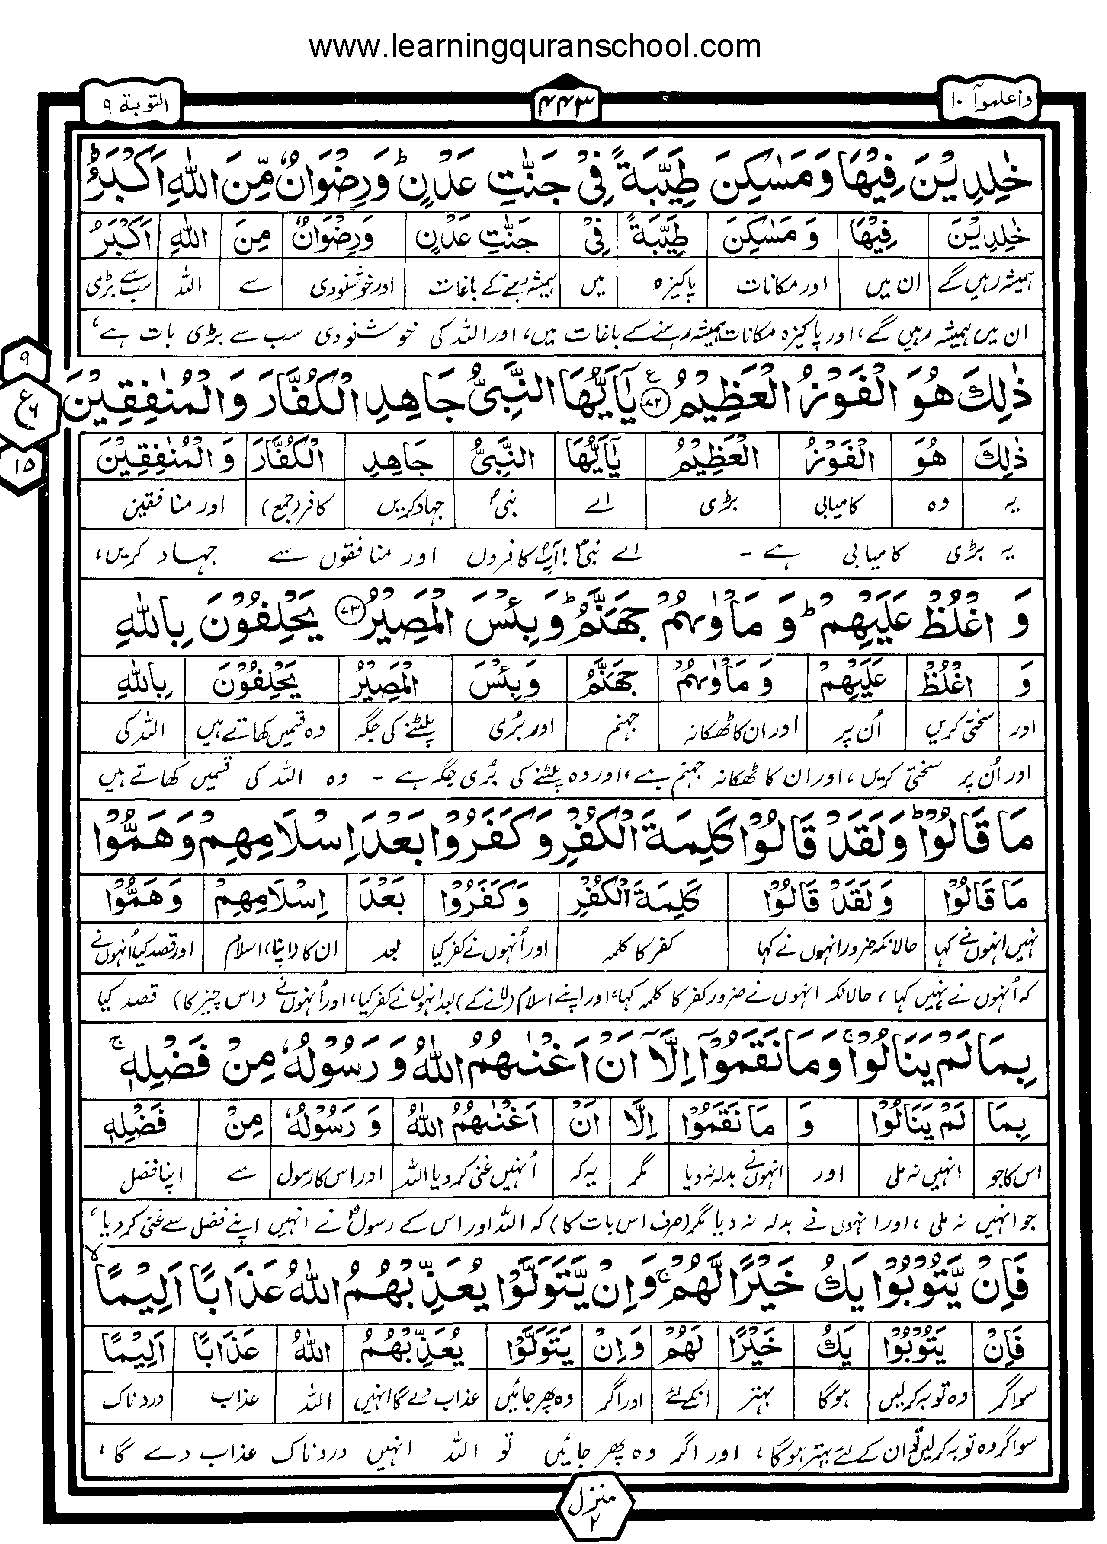 www.learningquranschool.com
واعلموآ ١٠
۴۴۳
التوبة ٩
خٰلِدِيْنَ فِيْهَا وَمَسٰكِنَ طَيِّبَةً فِيْ جَنّٰتِ عَدْنٍ ؕ وَرِضْوَانٌ مِّنَ اللهِ اَكْبَرُ ؕ
خٰلِدِيْنَ فِيْهَا وَ مَسٰكِنَ طَيِّبَةً فِيْ جَنّٰتِ عَدْنٍ وَرِضْوَانٌ مِنَ اللهِ اَكْبَرُ
ہمیشہ رہیں گے ان میں اور مکانات پاکیزہ میں ہمیشہ رہنے کے باغات اور خوشنودی سے اللہ سب سے بڑی
ان میں ہمیشہ رہیں گے، اور پاکیزہ مکانات ہمیشہ رہنے کے باغات میں، اور اللہ کی خوشنودی سب سے بڑی بات ہے،
٩
ع ٦
١٥
ذٰلِكَ هُوَ الْفَوْزُ الْعَظِيْمُ ﴿٧٢﴾ يٰۤاَيُّهَا النَّبِيُّ جَاهِدِ الْكُفَّارَ وَالْمُنٰفِقِيْنَ
ذٰلِكَ هُوَ الْفَوْزُ الْعَظِيْمُ يٰۤاَيُّهَا النَّبِيُّ جَاهِدِ الْكُفَّارَ وَ الْمُنٰفِقِيْنَ
یہ وہ کامیابی بڑی اے نبیؐ جہاد کریں کافر (جمع) اور منافقین
یہ بڑی کامیابی ہے۔ اے نبیؐ! آپؐ کافروں اور منافقوں سے جہاد کریں،
وَ اغْلُظْ عَلَيْهِمْ ؕ وَ مَاْوٰىهُمْ جَهَنَّمُ ؕ وَ بِئْسَ الْمَصِيْرُ ﴿٧٣﴾ يَحْلِفُوْنَ بِاللهِ
وَ اغْلُظْ عَلَيْهِمْ وَ مَاْوٰىهُمْ جَهَنَّمُ وَ بِئْسَ الْمَصِيْرُ يَحْلِفُوْنَ بِاللهِ
اور سختی کریں اُن پر اور ان کا ٹھکانہ جہنم اور بُری پلٹنے کی جگہ وہ قسمیں کھاتے ہیں اللہ کی
اور اُن پر سختی کریں، اور ان کا ٹھکانہ جہنم ہے، اور وہ پلٹنے کی بُری جگہ ہے ۔ وہ اللہ کی قسمیں کھاتے ہیں
مَا قَالُوْا ؕ وَلَقَدْ قَالُوْا كَلِمَةَ الْكُفْرِ وَ كَفَرُوْا بَعْدَ اِسْلَامِهِمْ وَهَمُّوْا
مَا قَالُوْا وَ لَقَدْ قَالُوْا كَلِمَةَ الْكُفْرِ وَ كَفَرُوْا بَعْدَ اِسْلَامِهِمْ وَ هَمُّوْا
نہیں انہوں نے کہا حالانکہ ضرور انہوں نے کہا کفر کا کلمہ اور اُنہوں نے کفر کیا بعد ان کا (اپنا) اسلام اور قصد کیا اُنہوں نے
کہ اُنہوں نے نہیں کہا، حالانکہ انہوں نے ضرور کفر کا کلمہ کہا، اور اپنے اسلام (لانے کے) بعد انہوں نے کفر کیا، اور اُنہوں نے (اس چیز کا) قصد کیا
بِمَا لَمْ يَنَالُوْا ۚ وَمَا نَقَمُوْۤا اِلَّاۤ اَنْ اَغْنٰىهُمُ اللهُ وَ رَسُوْلُهٗ مِنْ فَضْلِهٖ ۚ
بِمَا لَمْ يَنَالُوْا وَ مَا نَقَمُوْۤا اِلَّا اَنْ اَغْنٰىهُمُ اللهُ وَ رَسُوْلُهٗ مِنْ فَضْلِهٖ
اس کا جو انہیں نہ ملی اور انہوں نے بدلہ نہ دیا مگر یہ کہ اُنہیں غنی کر دیا اللہ اور اس کا رسول سے اپنا فضل
جو انہیں نہ ملی، اور انہوں نے بدلہ نہ دیا مگر (صرف اس بات کا) کہ اللہ اور اس کے رسولؐ نے انہیں اپنے فضل سے غنی کر دیا،
فَاِنْ يَّتُوْبُوْا يَكُ خَيْرًا لَّهُمْ ۚ وَ اِنْ يَّتَوَلَّوْا يُعَذِّبْهُمُ اللهُ عَذَابًا اَلِيْمًا ۙ
فَاِنْ يَتُوْبُوْا يَكُ خَيْرًا لَهُمْ وَ اِنْ يَتَوَلَّوْا يُعَذِّبْهُمُ اللهُ عَذَابًا اَلِيْمًا
سو اگر وہ توبہ کر لیں ہوگا بہتر انکے لئے اور اگر وہ پھر جائیں عذاب دے گا انہیں اللہ عذاب دردناک
سو اگر وہ توبہ کر لیں تو ان کے لئے بہتر ہوگا، اور اگر وہ پھر جائیں تو اللہ انہیں دردناک عذاب دے گا،
منزل ٢